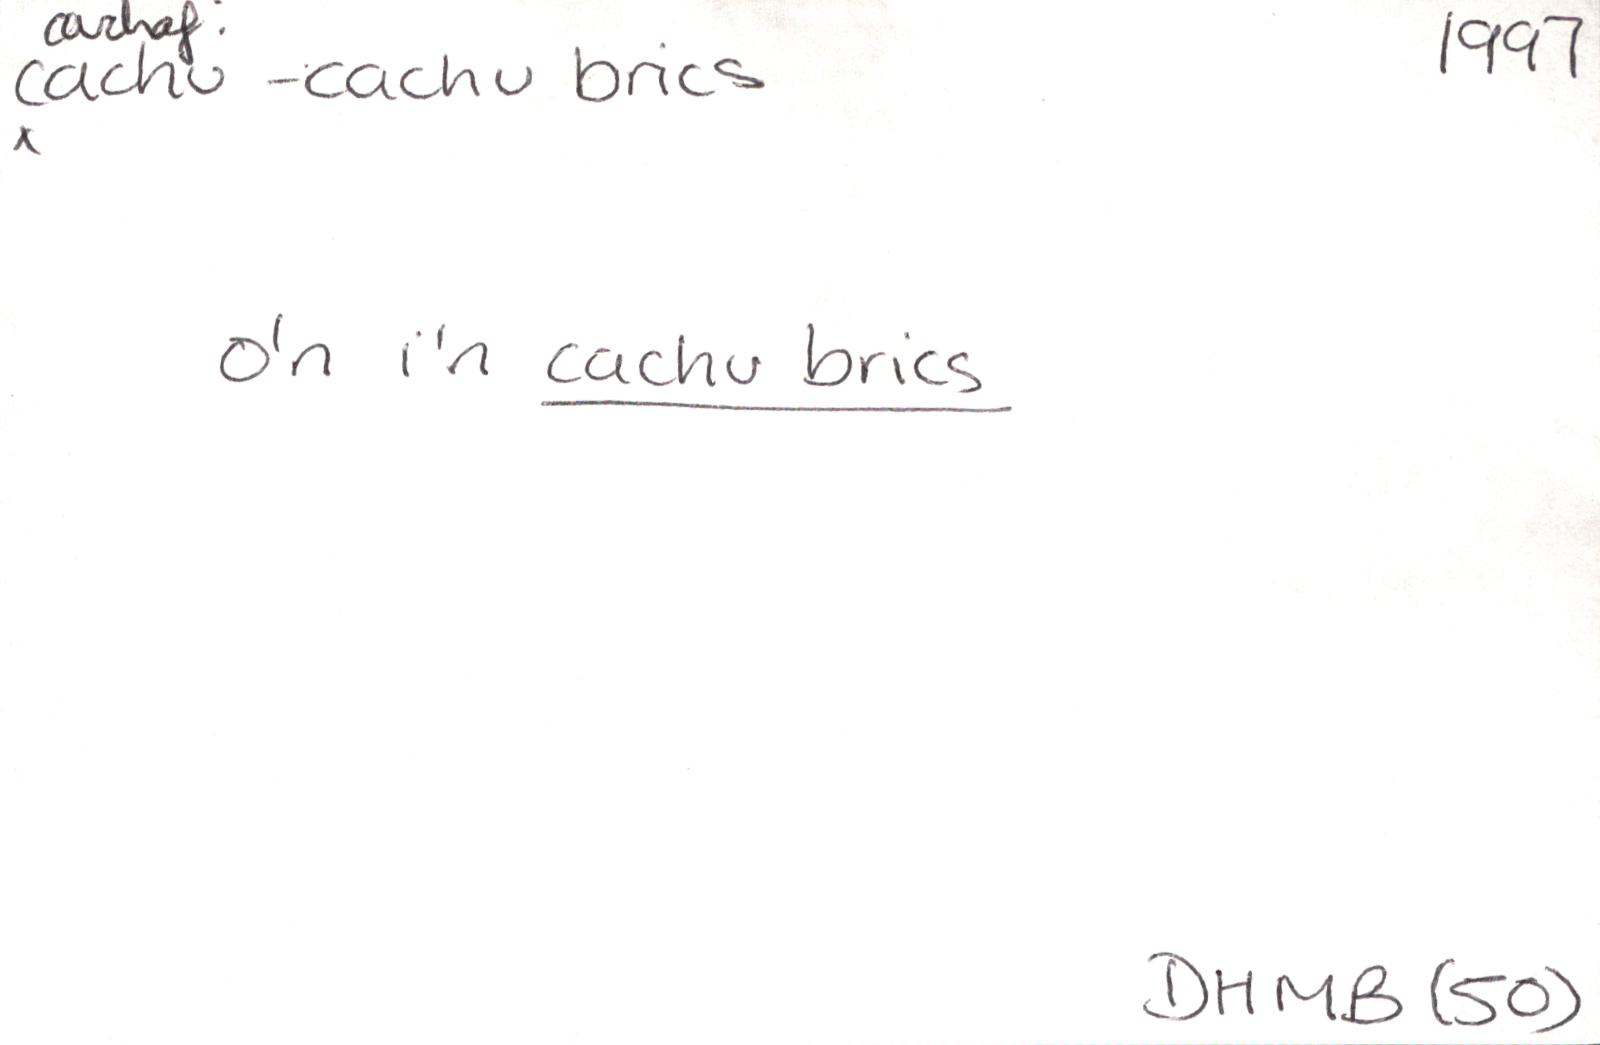 cachaf:
cachu - cachu brics 1997
x
o'n i'n cachu brics
DHMB (50)